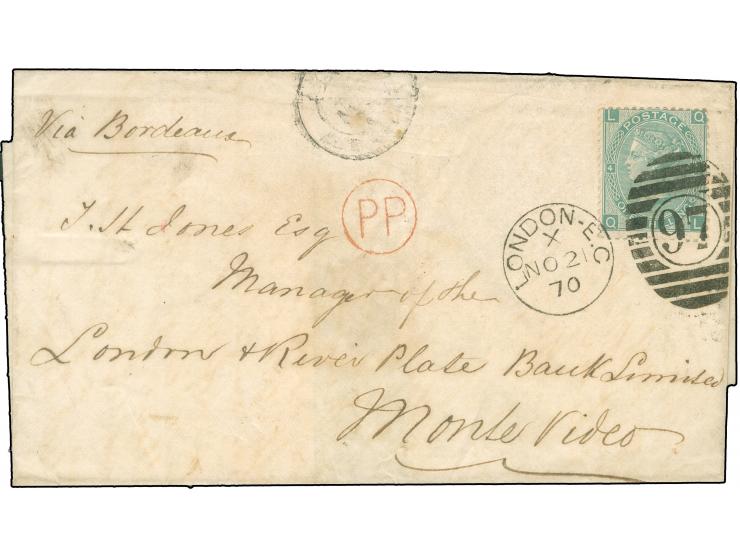 Via Bordeaux
L Q
POSTAGE
4
Q L
97
PP
LONDON-E.C
X
NO 21
70
J. H Jones Esq
Manager of the
London & River Plate Bank Limited
Monte Video